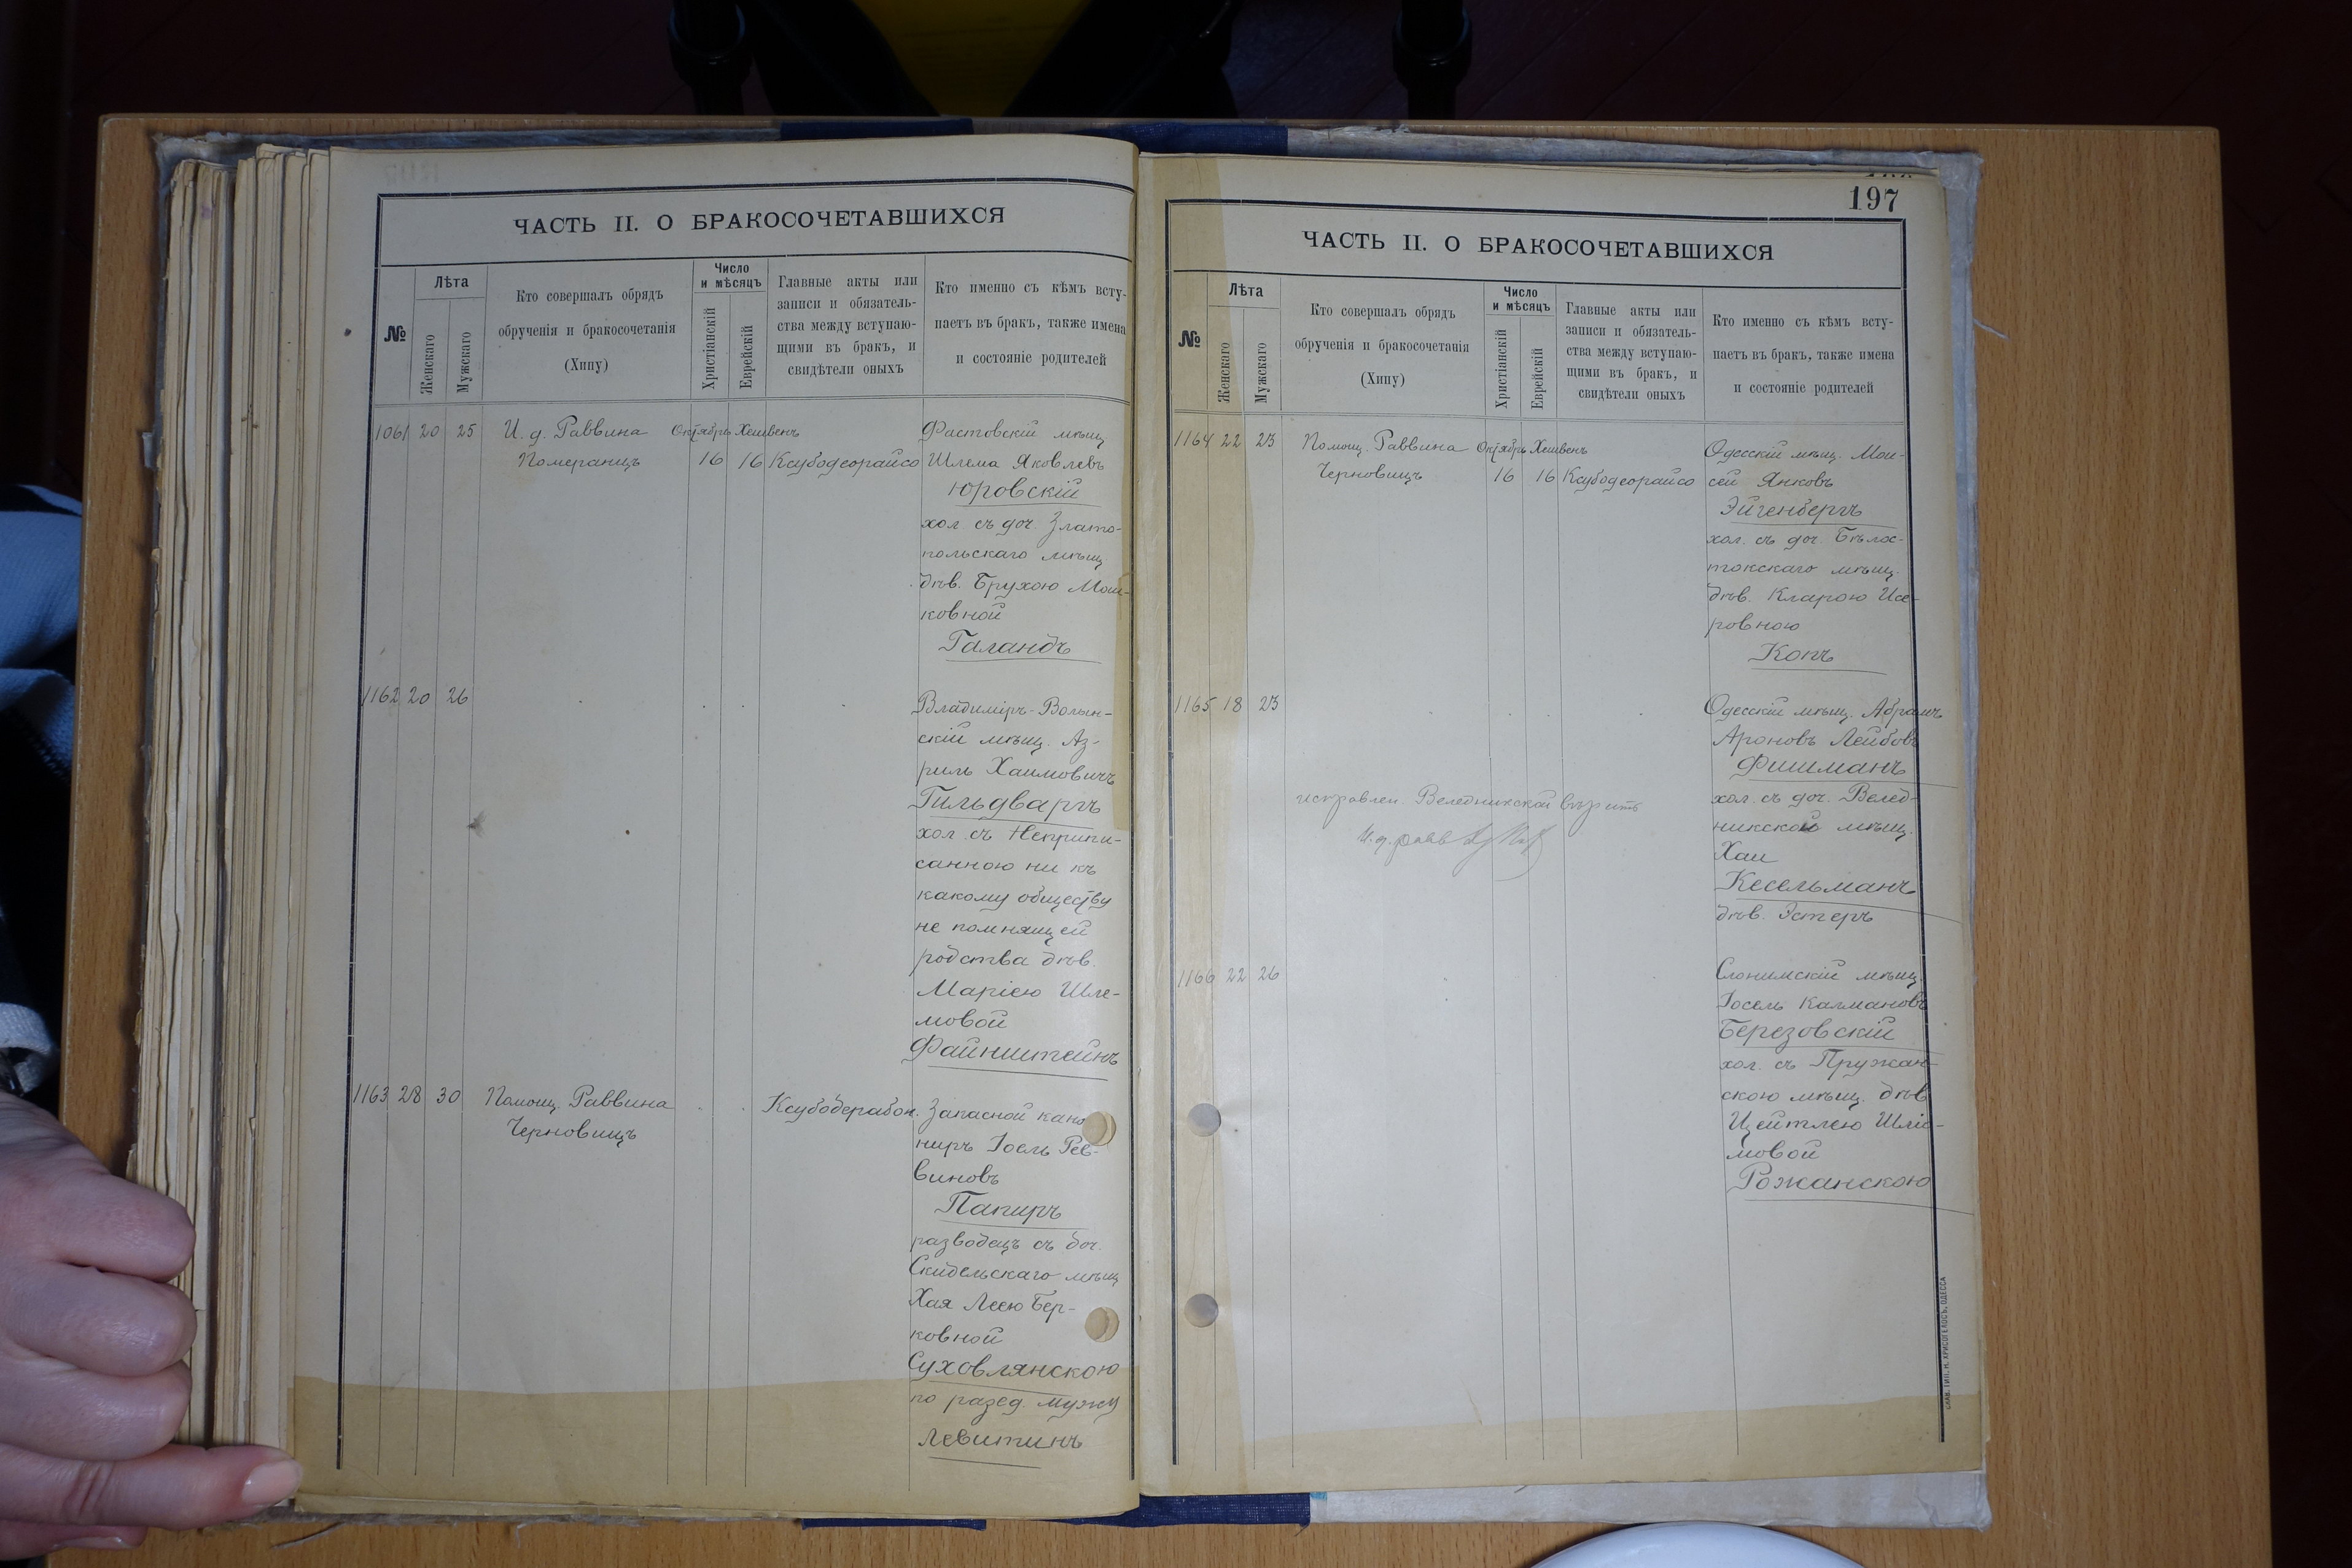 ЧАСТЬ II. О БРАКОСОЧЕТАВШИХСЯ
№
Лѣта
Женскаго
Мужскаго
Кто совершалъ обрядъ
обрученія и бракосочетанія
(Хипу)
Число
и мѣсяцъ
Христіанскій
Еврейскій
Главные акты или
записи и обязатель-
ства между вступаю-
щими въ бракъ, и
свидѣтели оныхъ
Кто именно съ кѣмъ всту-
паетъ въ бракъ, также имена
и состояніе родителей
1061 20 25 И. д. Раввина Октябрь Хешвенъ Фастовскій мѣщ
Померанцъ 16 16 Ксубодеорайсо Шлема Яковлевъ
Юровскій
хол. съ доч. Злато-
польскаго мѣщ
дѣв. Брухою Мош-
ковной
Галандъ
1162 20 26 Владиміръ-Волын-
скій мѣщ. Аз-
риль Хаимовичъ
Гильдваргъ
хол. съ Неприпи-
санною ни къ
какому обществу
не помнящей
родства дѣв.
Маріею Шле-
мовой
Файнштейнъ
1163 28 30 Помощ. Раввина Ксубодерабон. Запасной кано
Черновицъ ниръ Іосль Рев-
виновъ
Папиръ
разводецъ съ доч.
Скидельскаго мѣщ
Хая Леею Бер-
ковной
Суховлянскою
по развед. мужу
Левитинъ
197
ЧАСТЬ II. О БРАКОСОЧЕТАВШИХСЯ
№
Лѣта
Женскаго
Мужскаго
Кто совершалъ обрядъ
обрученія и бракосочетанія
(Хипу)
Число
и мѣсяцъ
Христіанскій
Еврейскій
Главные акты или
записи и обязатель-
ства между вступаю-
щими въ бракъ, и
свидѣтели оныхъ
Кто именно съ кѣмъ всту-
паетъ въ бракъ, также имена
и состояніе родителей
1164 22 23 Помощ. Раввина Октябрь Хешвенъ Одесскій мѣщ. Мои-
Черновицъ 16 16 Ксубодеорайсо сей Янковъ
Эйгенбергъ
хол. съ доч. Бѣлос-
токскаго мѣщ.
дѣв. Кларою Исе-
ровною
Копъ
1165 18 23 Одесскій мѣщ. Абрамъ
Ароновъ Лейбовъ
Фишманъ
исправлен. Веледникской вѣрить хол. съ доч. Велед-
И. д. равв никской мѣщ.
Хаи
Кесельманъ
дѣв. Эстеръ
1166 22 26 Слонимскій мѣщ.
Іосель Калмановъ
Березовскій
хол. съ Пружан-
скою мѣщ. дѣв
Цейтлею Шліо-
мовой
Рожанскою
СЛАВ. ТИП. Н. ХРИСОГЕЛОСЪ, ОДЕССА